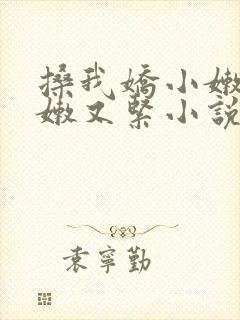 搡我嬌小嫩
嫩又緊小說
袁寧勤